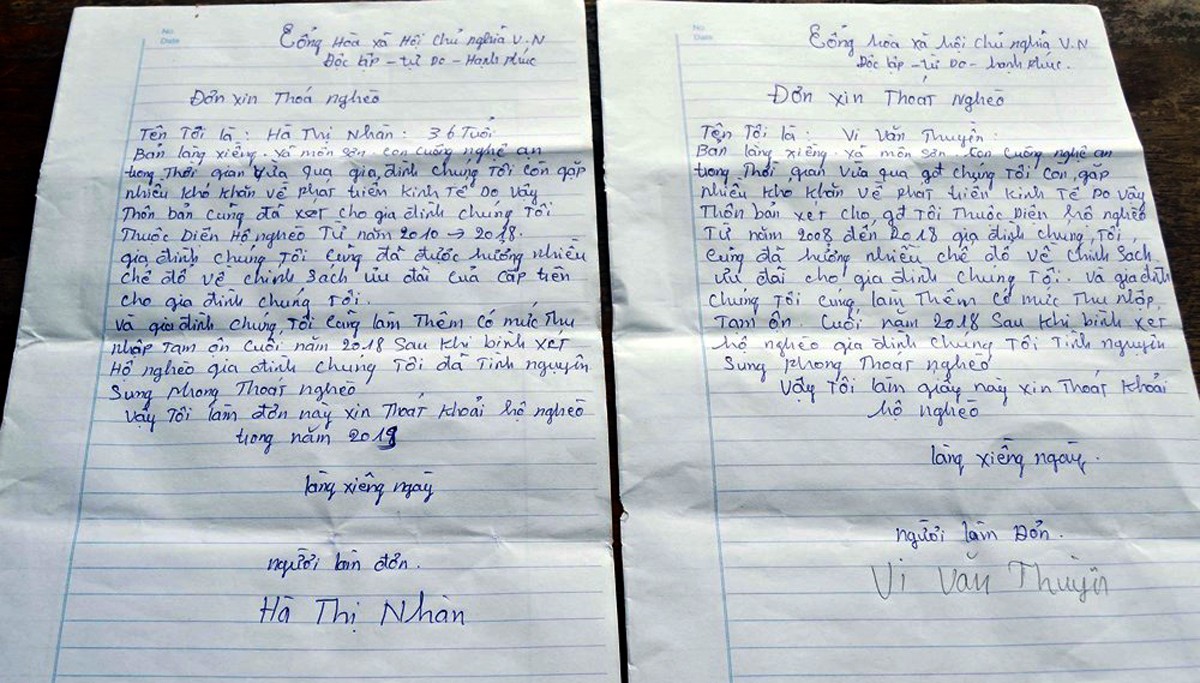 No
Date
Cộng Hòa xã Hội Chủ nghĩa V.N
Độc lập - Tự Do - Hạnh phúc
Đơn xin Thoá nghèo
Tên Tôi là : Hà Thị Nhàn : 36 Tuổi
Bản làng xiềng. xã môn sơn. con cuông nghệ an
trong Thời gian vừa qua gia đình chúng Tôi còn gặp
nhiều khó khăn về phát triển kinh Tế Do vậy
Thôn bản cũng đã xét cho gia đình chúng Tôi
Thuộc Diện Hộ nghèo Từ năm 2010 → 2018.
gia đình chúng Tôi cũng đã được hưởng nhiều
chế độ về chính sách ưu đãi của cấp trên
cho gia đình chúng Tôi.
và gia đình chúng Tôi cũng làm Thêm có mức Thu
nhập Tạm ổn cuối năm 2018 Sau khi bình xét
Hộ nghèo gia đình chúng Tôi đã Tình nguyện
Sung phong Thoát nghèo
Vậy Tôi làm đơn này xin Thoát khoải hộ nghèo
trong năm 2019
làng xiềng ngày
người làm đơn.
Hà Thị Nhàn
No
Date
Cộng hòa xã hội chủ nghĩa V.N
Độc lập - Tự Do - hạnh phúc.
Đơn xin Thoát Nghèo
Tên Tôi là : Vi Văn Thuyền :
Bản làng xiềng. xã môn sơn. con cuông nghệ an
trong Thời gian vừa qua gđ chúng Tôi còn gặp
nhiều khó khăn về phát triển kinh Tế Do vậy
Thôn bản xét cho gđ Tôi Thuộc Diện hộ nghèo
Từ năm 2008 đến 2018 gia đình chúng Tôi
cũng đã hưởng nhiều chế độ về chính Sách
ưu đãi cho gia đình chúng Tôi. và gia đình
chúng Tôi cũng làm Thêm có mức Thu nhập
Tạm ổn. Cuối năm 2018 Sau khi bình xét
hộ nghèo gia đình chúng Tôi Tình nguyện
Sung phong Thoát nghèo
Vậy Tôi làm giấy này xin Thoát khoải
hộ nghèo
làng xiềng ngày.
người làm Đơn.
Vi Văn Thuyền